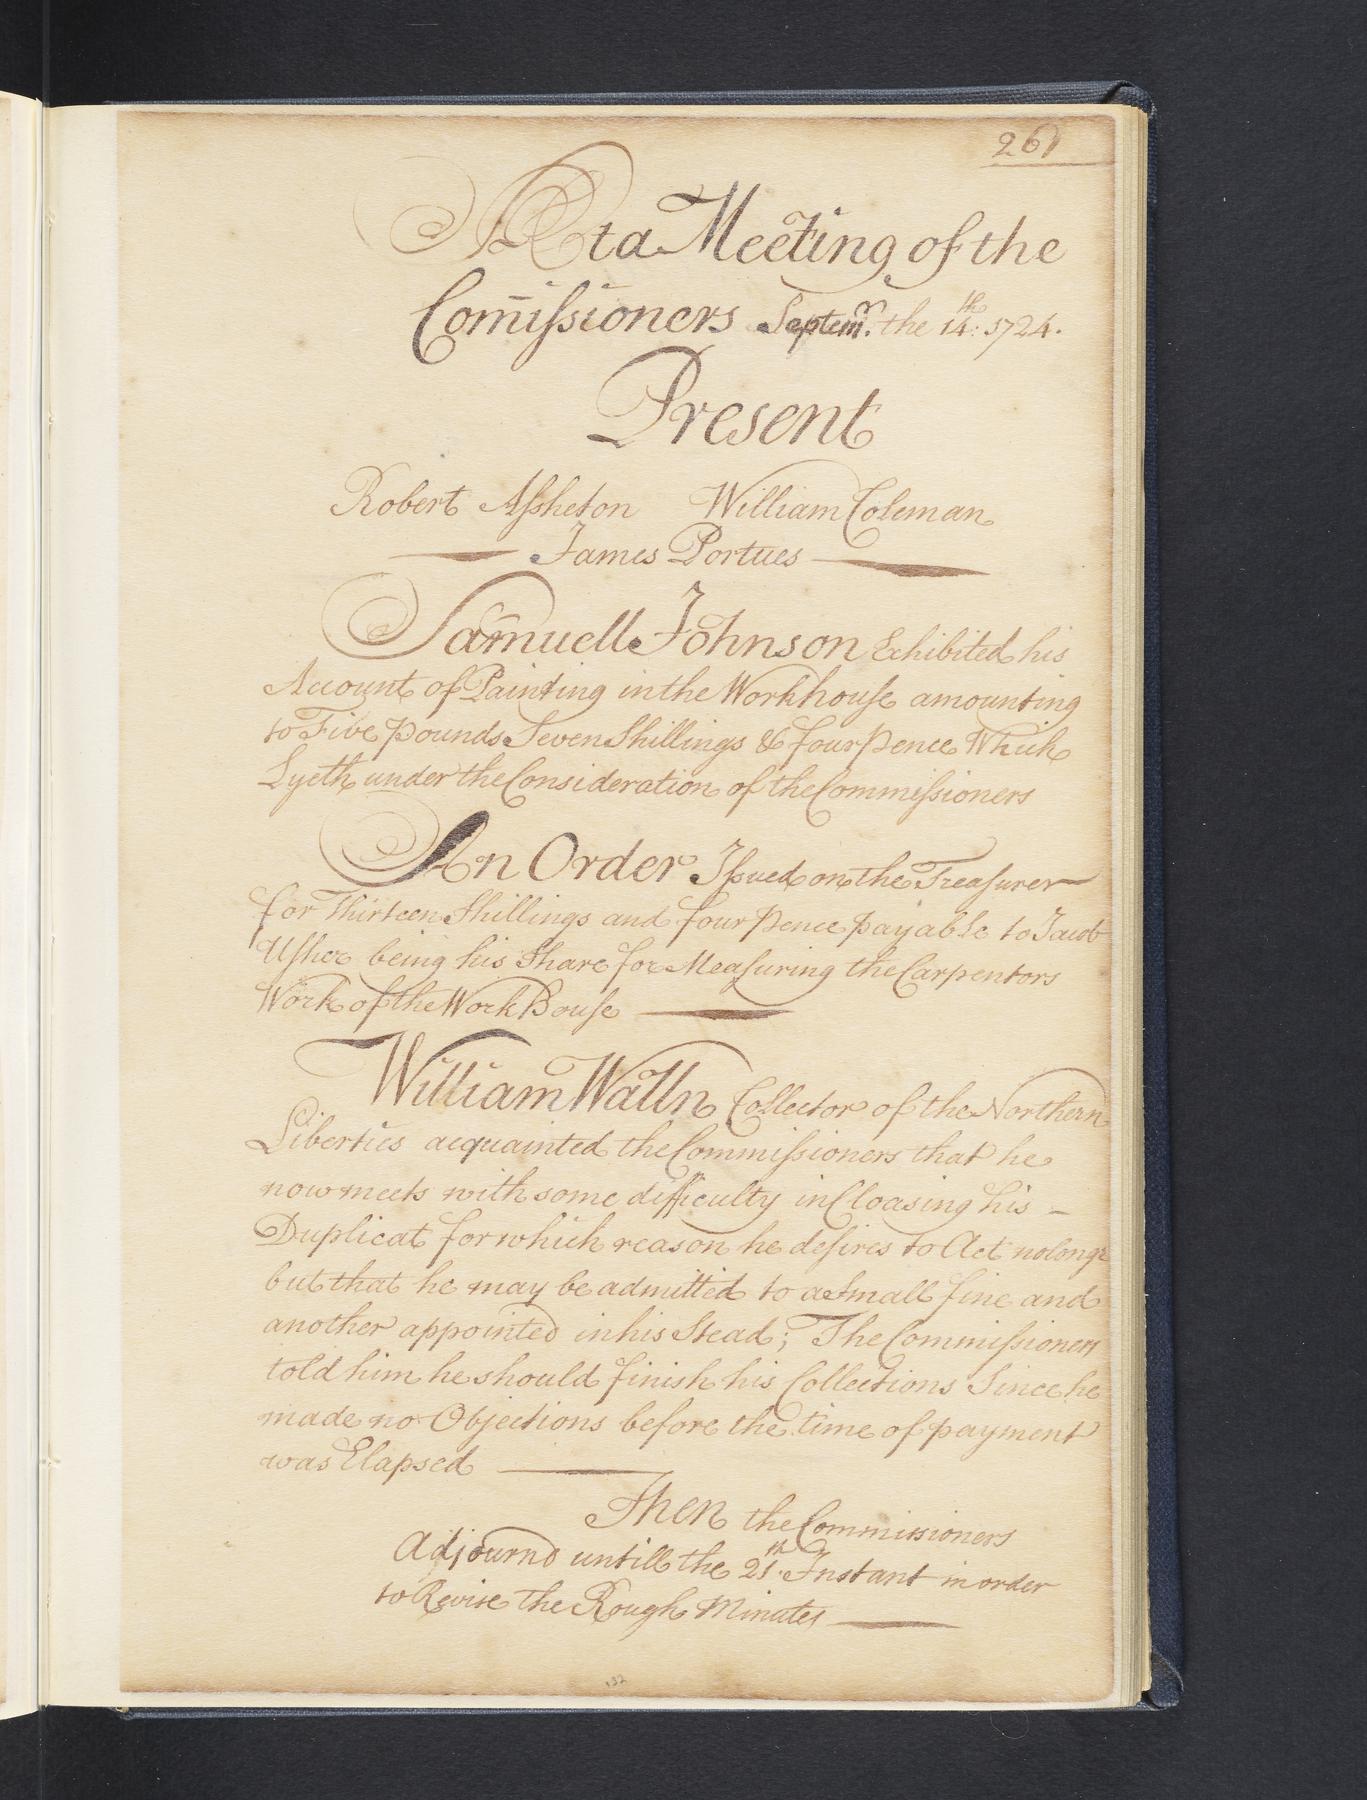 261
At a Meeting of the
Com̄issioners Septem.r the 14th: 1724.
Present
Robert Assheton William Coleman
James Portues
Samuell Johnson Exhibited his
Account of Painting in the Workhouse amounting
to Five pounds Seven Shillings & four pence Which
Lyeth under the Consideration of the Commissioners
An Order Issued on the Treasurer
for Thirteen Shillings and four pence payable to Jacob
Usher being his Share for Measuring the Carpentors
Work of the Work House
William Walln Collector of the Northern
Liberties acquainted the Commissioners that he
now meets with some difficulty in Cloasing his -
Duplicat for which reason he desires to Act no longr
but that he may be admitted to a Small fine and
another appointed in his Stead; The Commissioners
told him he should finish his Collections Since he
made no Objections before the time of payment
was Elapsed
Then the Commissioners
Adjournd untill the 21st. Instant in order
to Revise the Rough Minutes
132